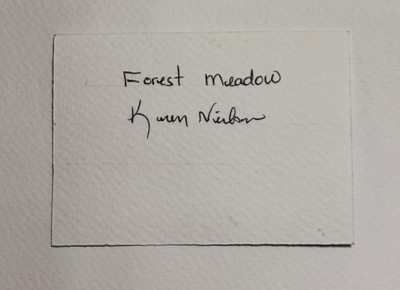 Forest Meadow
Karen Nielsen